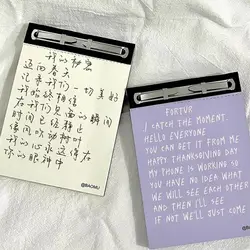 我的勒恩
返回春天
记录我们一切美好
我始终相信
在我们见面的瞬间
时间已经静止
像风吹动树叶
我的心永远停在
你的眼神中
@BAOMU
FORTUR
I CATCH THE MOMENT.
HELLO EVERYONE
YOU CAN GET IT FROM ME
HAPPY THANKSGIVING DAY
MY PHONE IS WORKING SO
YOU HAVE NO IDEA WHAT
WE WILL SEE EACH OTHER
AND THEN I'LL SEE
IF NOT WE'LL JUST COME
@BAOMU